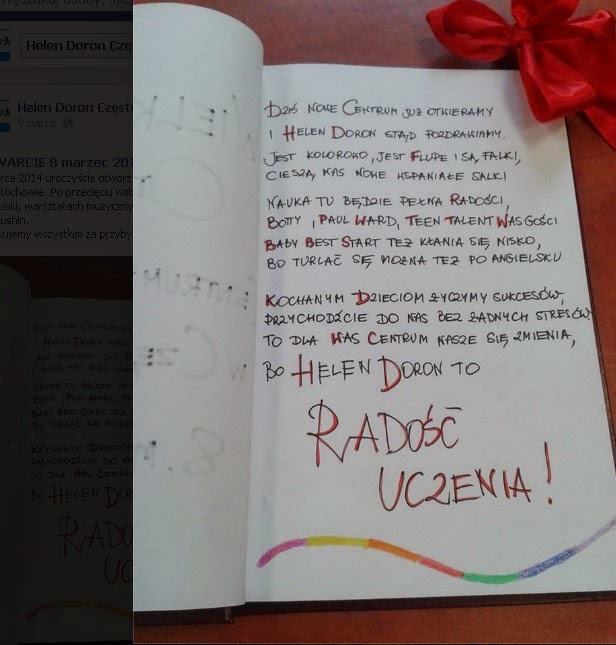 Helen Doron Częs
Helen Doron Często
9 marca
WARCIE 8 marzec 201
rca 2014 uroczyście otworz
tochowie. Po przecięciu wst
iaki, warsztatach muzyczny
ushin.
kujemy wszystkim za przyby
DZIŚ NOWE CENTRUM JUŻ OTWIERAMY
I HELEN DORON STĄD POZDRAWIAMY.
JEST KOLOROWO, JEST FLUPE I SĄ FALKI,
CIESZĄ NAS NOWE WSPANIAŁE SALKI
NAUKA TU BĘDZIE PEŁNA RADOŚCI,
BOTTY, PAUL WARD, TEEN TALENT WAS GOŚCI
BABY BEST START TEŻ KŁANIA SIĘ NISKO,
BO TURLAĆ SIĘ MOŻNA TEŻ PO ANGIELSKU
KOCHANYM DZIECIOM ŻYCZYMY SUKCESÓW,
PRZYCHODŹCIE DO NAS BEZ ŻADNYCH STRESÓW
TO DLA WAS CENTRUM NASZE SIĘ ZMIENIA,
BO HELEN DORON TO
RADOŚĆ
UCZENIA!